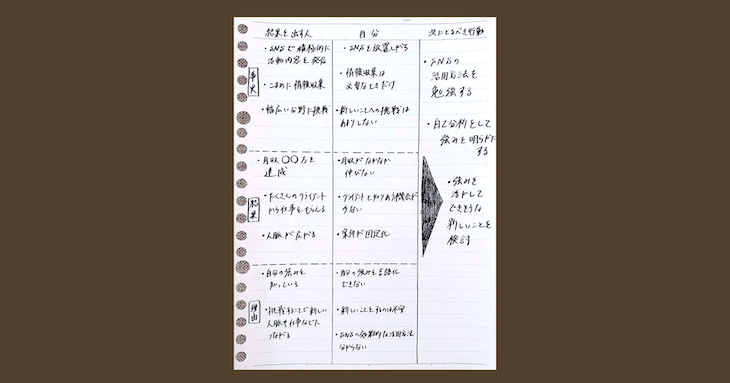 結果を出す人
自分
次にとるべき行動
事実
・SNSで積極的に
活動内容を発信
・こまめに情報収集
・幅広い分野に挑戦
・SNSを放置しがち
・情報収集は
必要なときだけ
・新しいことへの挑戦は
あまりしない
結果
・月収〇〇万を
達成
・たくさんのクライアント
から仕事をもらえる
・人脈が広がる
・月収がなかなか
伸びない
・クライアントと知りあう機会が
少ない
・案件が固定化
理由
・自分の強みを
知っている
・挑戦することで新しい
人脈や仕事などに
つながる
・自分の強みを言語化
できない
・新しいことをするのは不安
・SNSの効果的な活用方法
がわからない
・SNSの
活用方法を
勉強する
・自己分析をして
強みを明らかに
する
・強みを
活かして
できそうな
新しいことを
検討